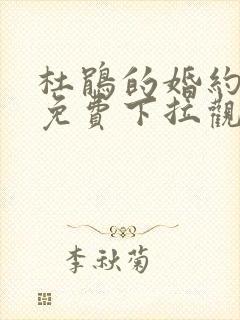 杜鵑的婚約
免費下拉觀
李秋菊